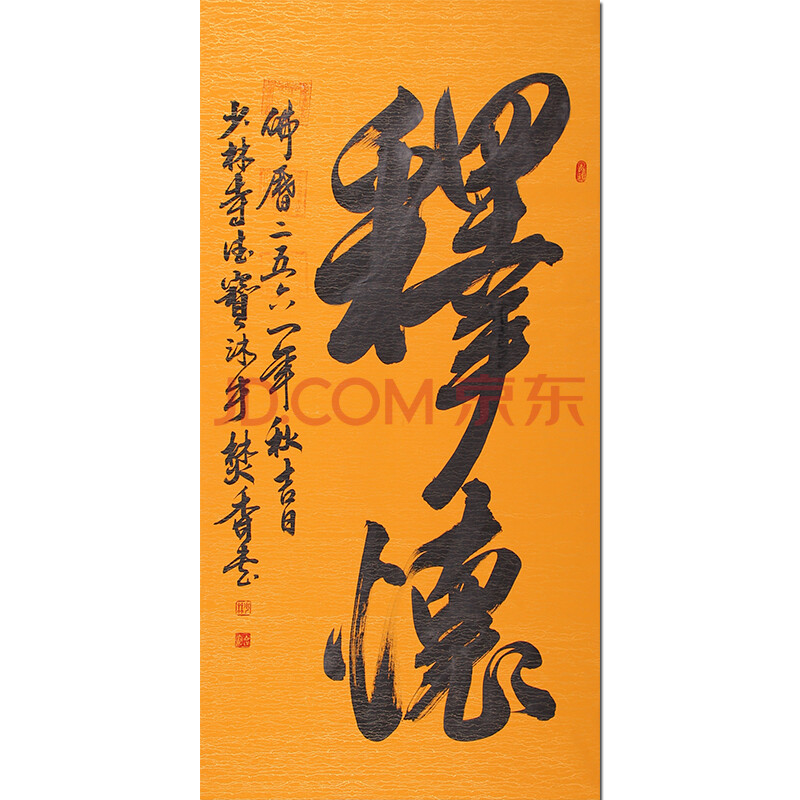 釋懷
佛曆二五六一年秋吉日
少林寺德寶沐手焚香書
JD.COM 京东